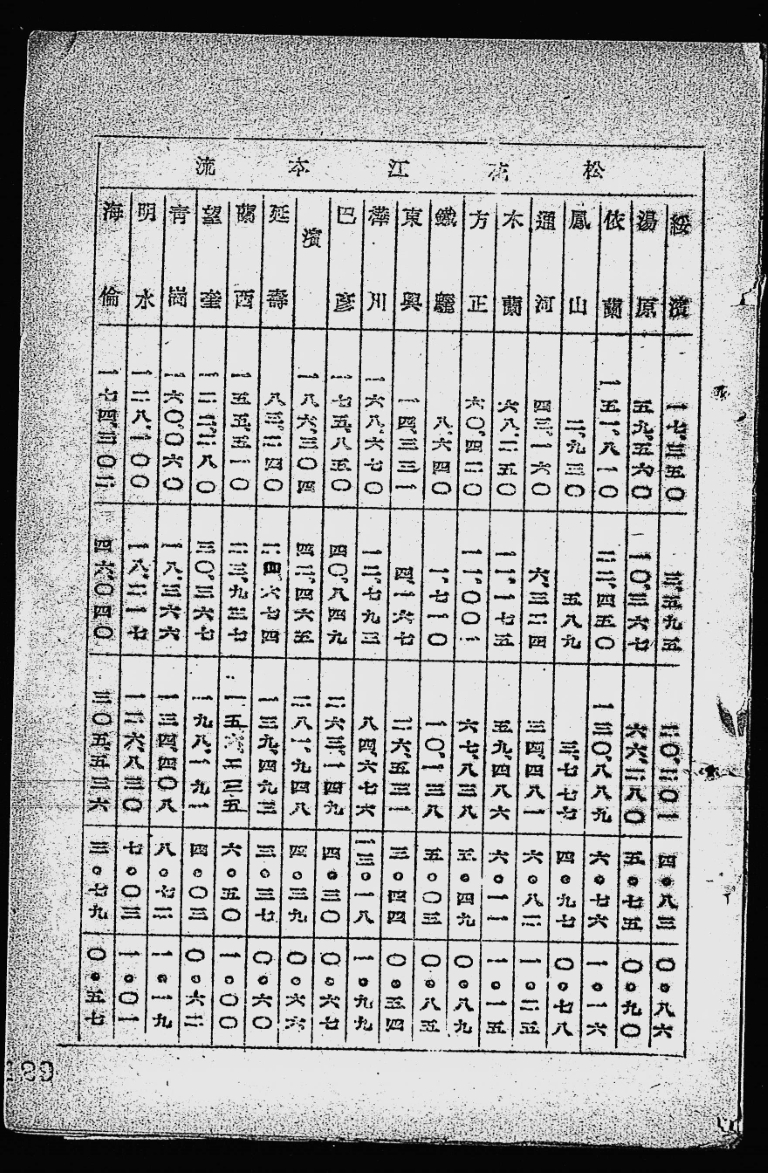 松花江本流
綏濱 一七、三五〇 三、五九五 二〇、二〇一 四・八三 〇・八六
湯原 五九、五六〇 一〇、三六七 六六、二八〇 五・七五 〇・九〇
依蘭 一五一、八一〇 二二、四五〇 一三〇、八八九 六・七六 一・一六
鳳山 二、九三〇 五八九 三、七七七 四・九七 〇・七八
通河 四三、一六〇 六、三二四 三四、四八一 六・八二 一・二五
木蘭 六八、二五〇 一一、一七五 五九、四八六 六・一一 一・一五
方正 六〇、四二〇 一一、〇〇一 六七、八三八 五・四九 〇・八九
鐵驪 八、六四〇 一、七一〇 一〇、一三八 五・〇五 〇・八五
東興 一四、三三一 四、一六七 二六、五三一 三・四四 〇・五四
樺川 一六八、六七〇 一二、七九三 八四、六七六 一三・一八 一・九九
巴彥 一七五、八五〇 四〇、八四九 二六三、一四九 四・三〇 〇・六七
濱 一八六、三〇四 四二、四六五 二八一、九四八 四・三九 〇・六六
延壽 八三、二四〇 二四、六七四 一三九、四九三 三・三七 〇・六〇
蘭西 一五五、五一〇 二三、九三七 一五六、二三五 六・五〇 一・〇〇
望奎 一二二、二八〇 三〇、三六七 一九八、一九一 四・〇三 〇・六二
青崗 一六〇、〇六〇 一八、三六六 一三四、四〇八 八・七二 一・一九
明水 一二八、一〇〇 一八、二一七 一二六、八三〇 七・〇三 一・〇一
海倫 一七四、三〇二 四六、〇四〇 三〇五、五三六 三・七九 〇・五七